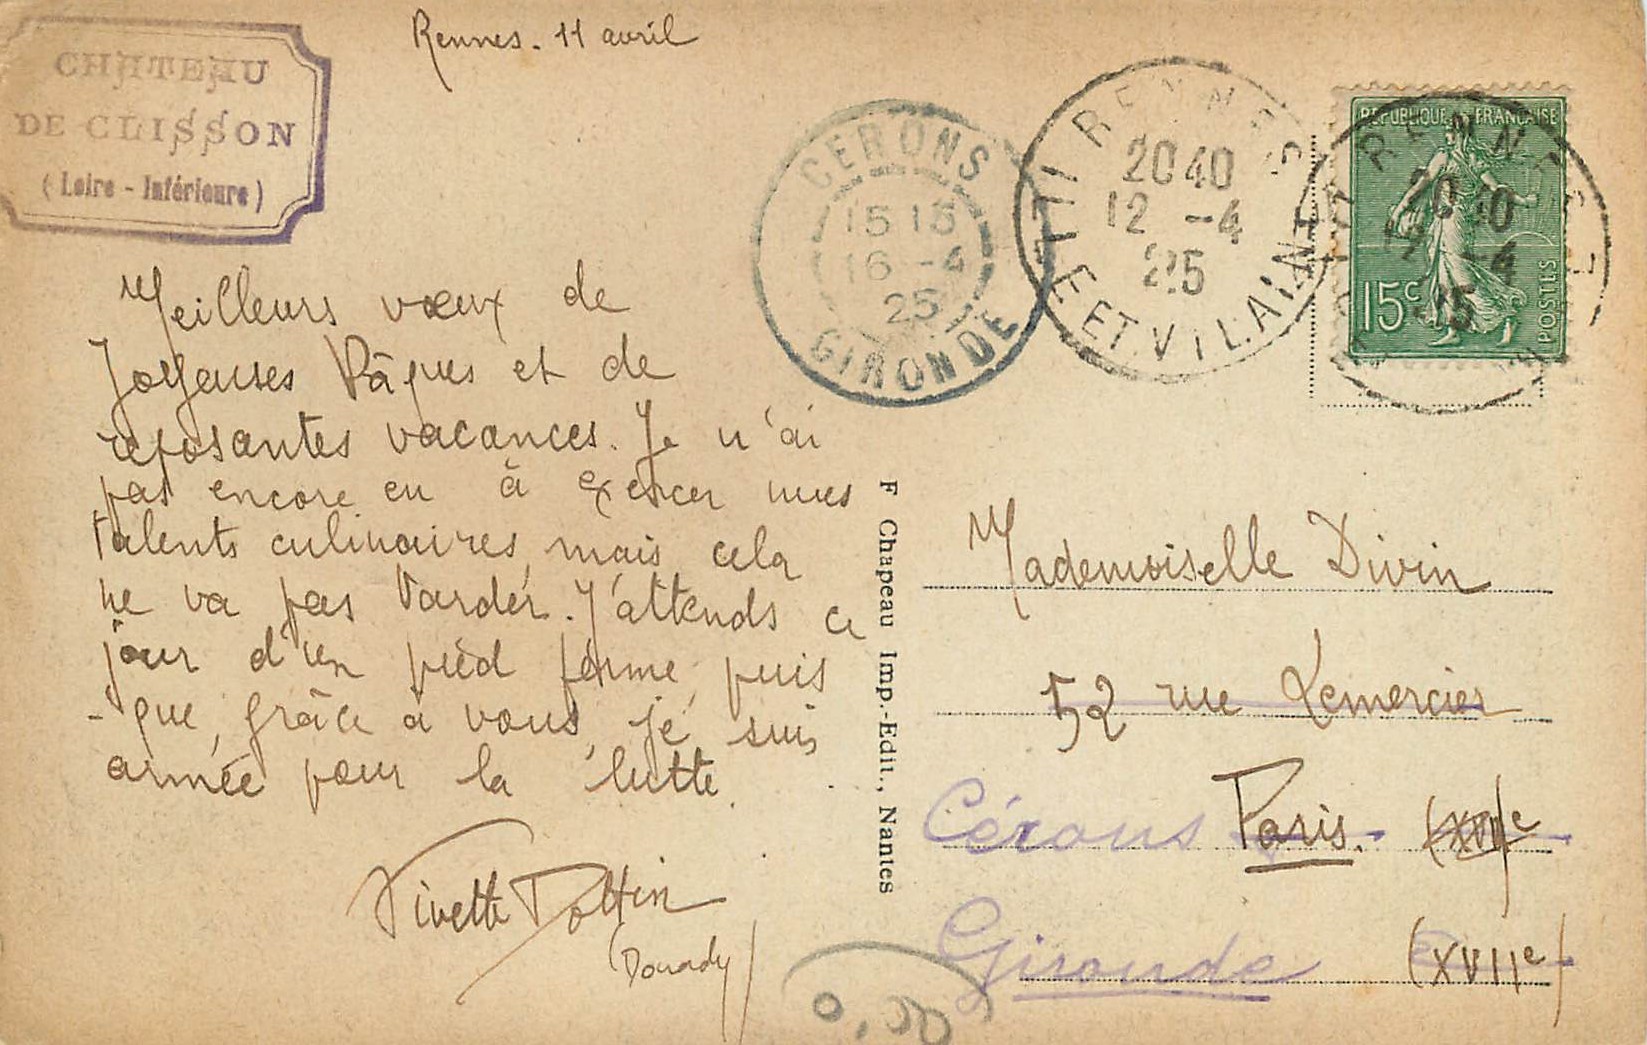 Rennes. 11 avril
CHATEAU
DE CLISSON
(Loire - Inférieure)
Meilleurs vœux de
Joyeuses Pâques et de
reposantes vacances. Je n'ai
pas encore eu à exercer mes
talents culinaires, mais cela
ne va pas tarder. J'attends ce
jour d'un pied ferme, puis
-que, grâce à vous, je suis
armée pour la lutte.
Vivette Dottin
(Douady)
CERONS
15 15
16 -4
25
GIRONDE
RENNES
20 40
12 -4
25
ILLE ET VILAINE
REPUBLIQUE FRANÇAISE
15c
POSTES
RENNES
20 40
12 -4
25
F Chapeau Imp.-Edit., Nantes
Mademoiselle Divin
52 rue Lemercier
Cérons Paris. (XVIIe
Gironde (XVIIe)
0,50